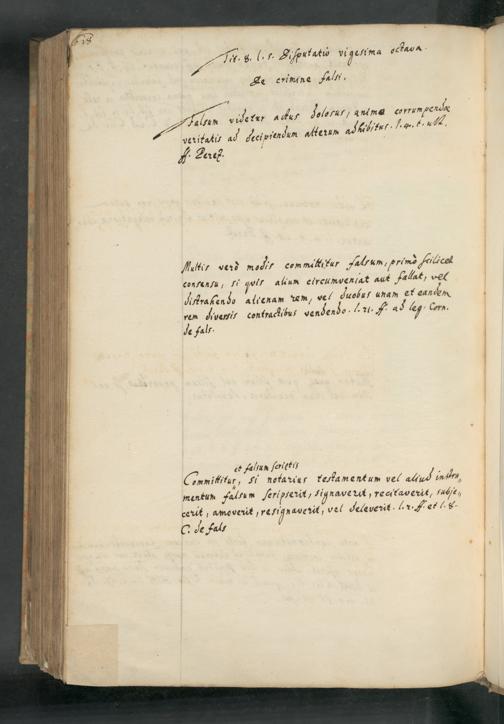 618
Tit. 8. l. s. Disputatio vigesima octava.
De crimine falsi.
Falsum videtur actus dolosus, animo corrumpendæ
veritatis ad decipiendum alterum adhibitus. l. 4. t.
ff. Perez.
Multis verò modis committitur falsum, primò scilicet
consensu, si quis alium circumveniat aut fallat, vel
distrahendo alienam rem, vel duobus unam et eandem
rem diversis contractibus vendendo. l. 21. ff. ad leg. Corn.
de fals.
et falsum scriptis
Committitur, si notarius testamentum vel aliud instru„
mentum falsum scripserit, signaverit, recitaverit, subje„
cerit, amoverit, resignaverit, vel deleverit. l. 2. ff. et l. 8.
C. de fals